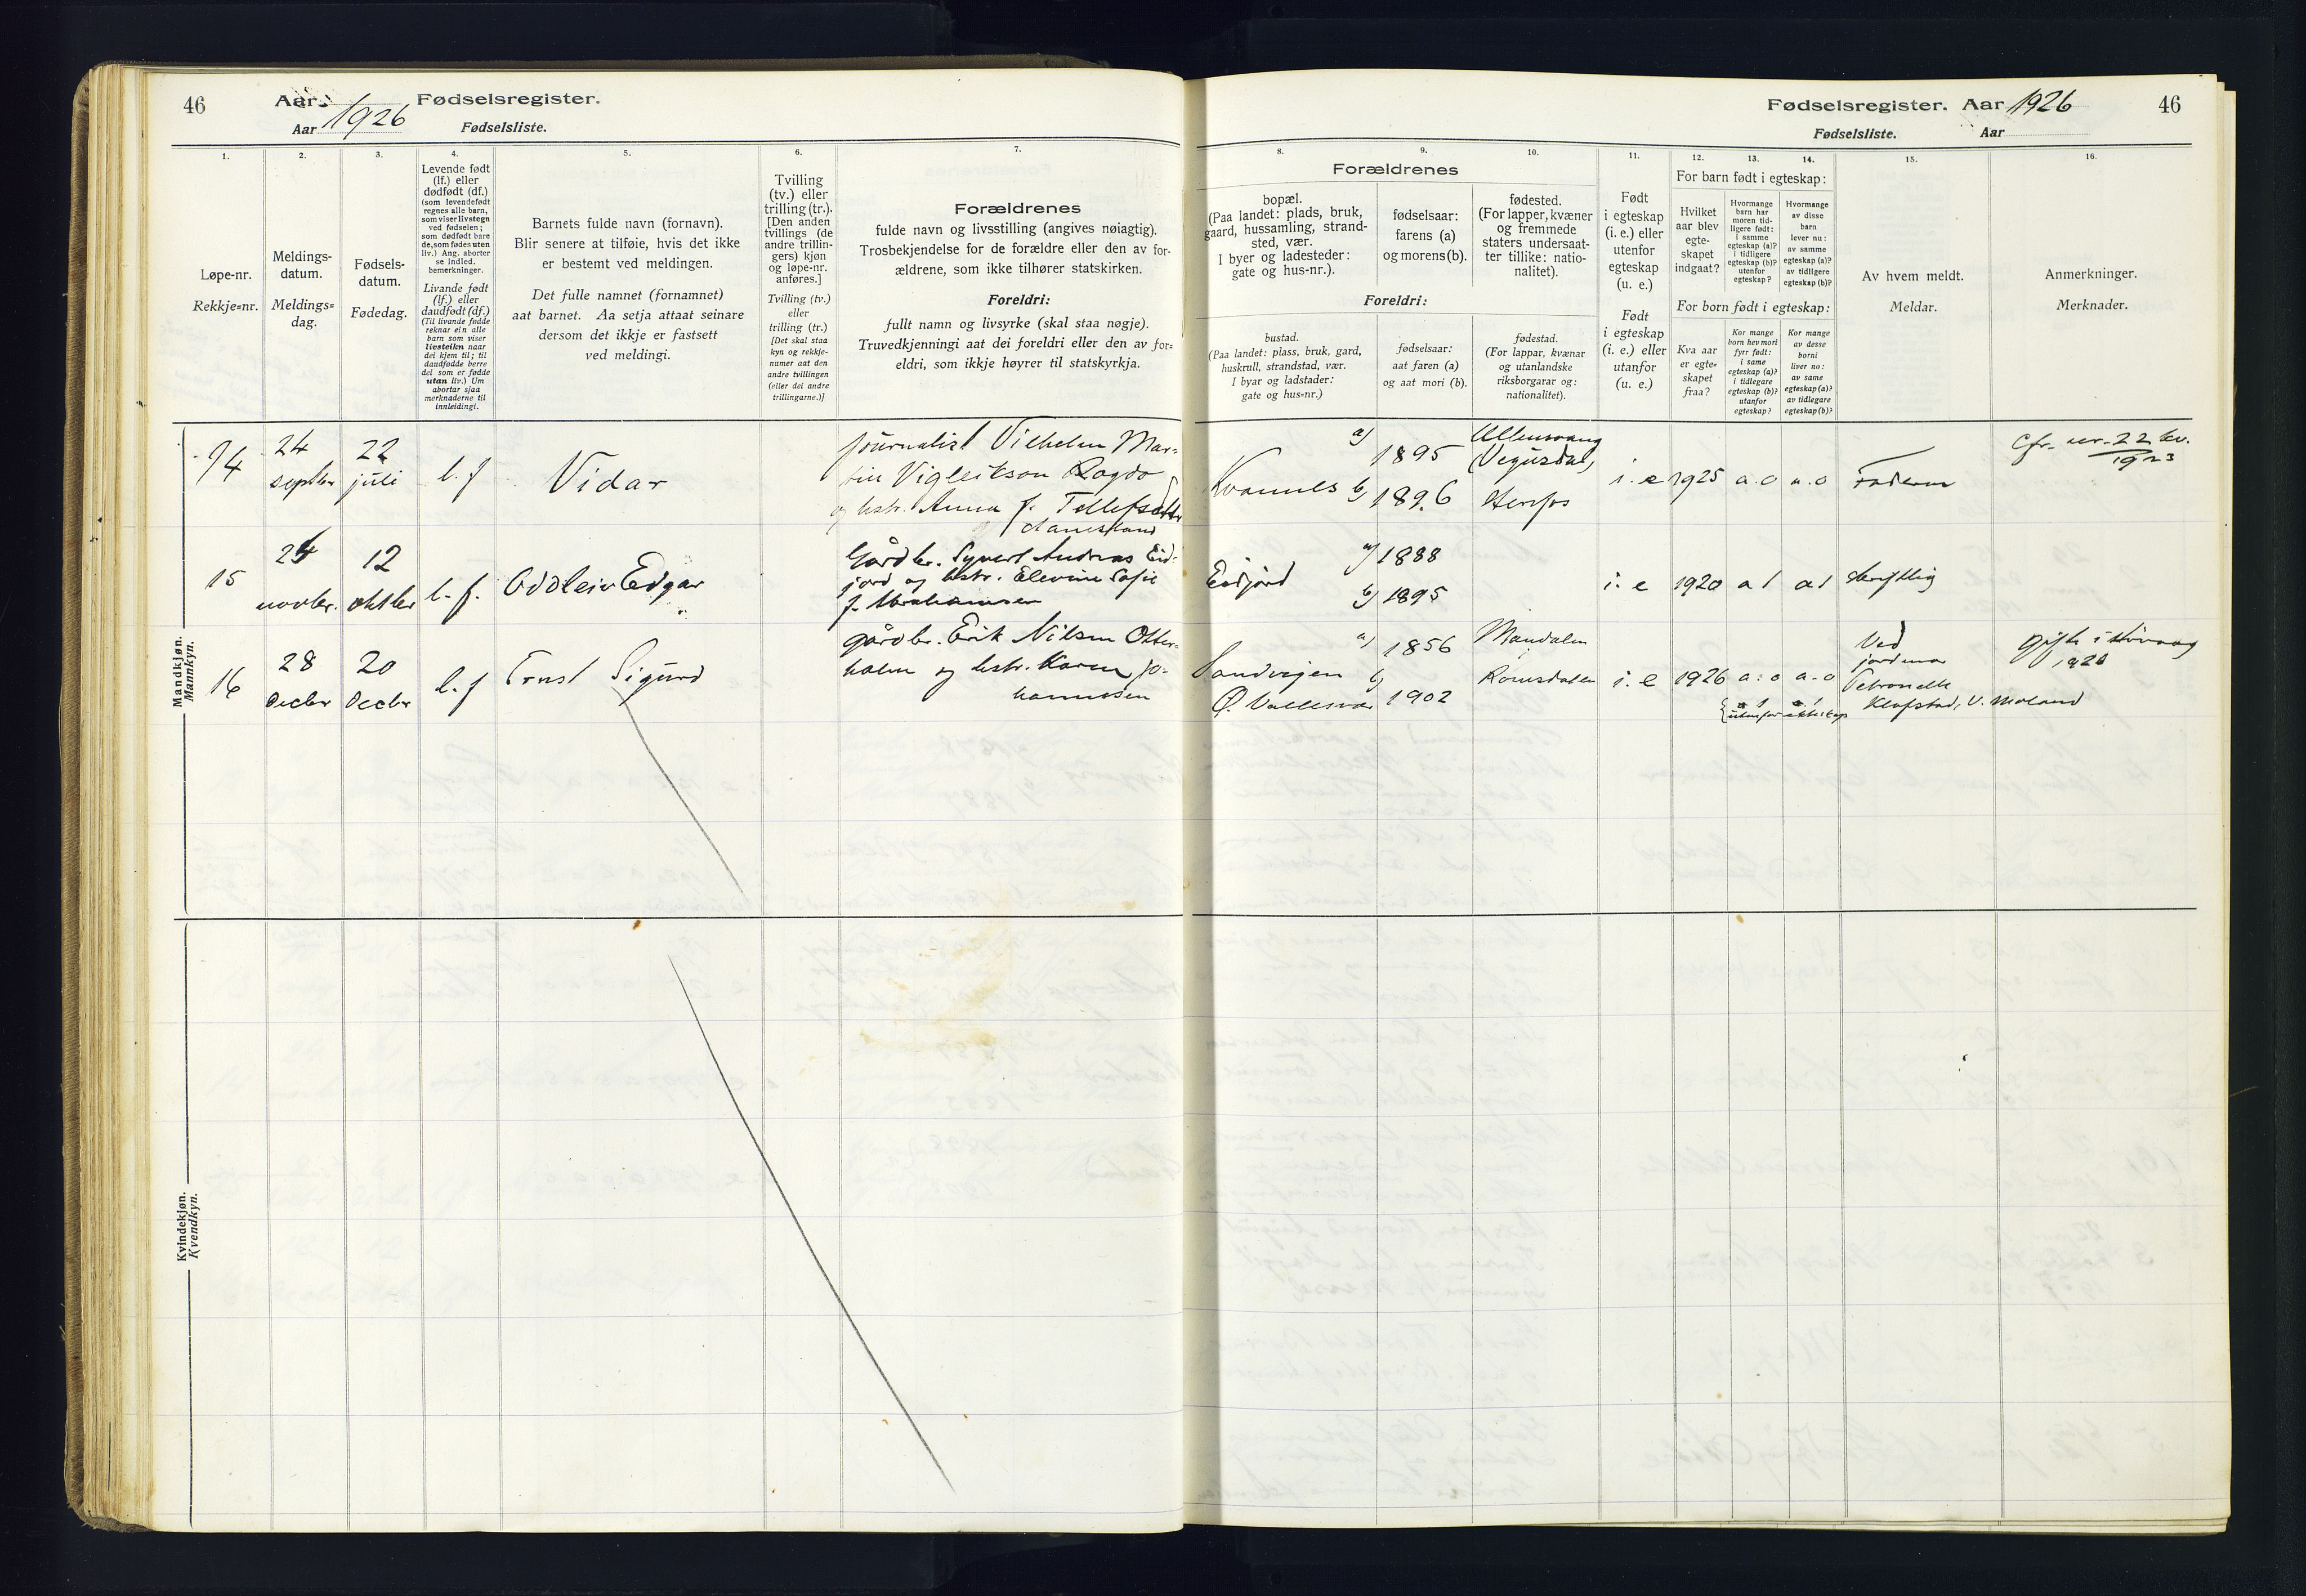 46
Aar 1926
Fødselsregister.
Aar
Fødselsliste.
1.
Løpe-nr.
Rekkje=nr.
2.
Meldings-
datum.
Meldings=
dag.
3.
Fødsels-
datum.
Fødedag.
4.
Levende født
(lf.) eller
dødfødt (df.)
(som levendefødt
regnes alle barn,
som viser livstegn
ved fødselen;
som dødfødt bare
de, som fødes uten
liv.) Ang. aborter
se indled.
bemerkninger.
Livande født
(lf.) eller
daudfødt (df.)
(Til livande fødde
reknar ein alle
barn som viser
livsteikn naar
dei kjem til; til
daudfødde berre
dei som er fødde
utan liv.) Um
abortar sjaa
merknaderne til
innleidingi.
5.
Barnets fulde navn (fornavn).
Blir senere at tilføie, hvis det ikke
er bestemt ved meldingen.
Det fulle namnet (fornamnet)
aat barnet. Aa setja attaat seinare
dersom det ikkje er fastsett
ved meldingi.
6.
Tvilling
(tv.) eller
trilling (tr.).
[Den anden
tvillings (de
andre trillin-
gers) kjøn
og løpe-nr.
anføres.]
Tvilling (tv.)
eller
trilling (tr.)
[Det skal staa
kyn og rekkje-
numer aat den
andre tvillingen
(eller dei andre
trillingarne.)]
7.
Forældrenes
fulde navn og livsstilling (angives nøiagtig).
Trosbekjendelse for de forældre eller den av for-
ældrene, som ikke tilhører statskirken.
Foreldri:
fullt namn og livsyrke (skal staa nøgje).
Truvedkjenningi aat dei foreldri eller den av for=
eldri, som ikkje høyrer til statskyrkja.
Mandkjøn.
Mannkyn.
14
24
septbr
22
juli
l. f
Vidar
journalist Vilhelm Mar-
tin Vigleikson Rogdo
og hstr. Anna f. Tellefsdttr
15
24
novbr.
12
oktbr
l. f.
Oddleiv Edgar
Gårdbr. Syvert Andreas Eid-
jord og hstr. Elevine Sofie
f. Abrahamsen
16
28
decbr
20
decbr
l. f
Ernst Sigurd
gårdbr. Erik Nilsen Otter-
holm og hstr. Karen Jo-
hannessen
Kvindekjøn.
Kvendkyn.
Fødselsregister. Aar 1926
46
Fødselsliste.
Aar
8.
Forældrenes
bopæl.
(Paa landet: plads, bruk,
gaard, hussamling, strand-
sted, vær.
I byer og ladesteder:
gate og hus-nr.).
Foreldri:
bustad.
(Paa landet: plass, bruk, gard,
huskrull, strandstad, vær.
I byar og ladstader:
gate og hus=nr.)
9.
fødselsaar:
farens (a)
og morens (b).
fødselsaar:
aat faren (a)
og aat mori (b).
10.
fødested.
(For lapper, kvæner
og fremmede
staters undersaat-
ter tillike: natio-
nalitet).
fødestad.
(For lappar, kvænar
og utanlandske
riksborgarar og:
nationalitet).
11.
Født
i egteskap
(i. e.) eller
utenfor
egteskap
(u. e.)
Født
i egteskap
(i. e.) eller
utanfor
(u. e.)
12.
13.
14.
For barn født i egteskap:
Hvilket
aar blev
egte-
skapet
indgaat?
Hvormange
barn har
moren tid-
ligere født:
i samme
egteskap (a)?
i tidligere
egteskap (b)?
utenfor
egteskap?
Hvormange
av disse
barn
lever nu:
av samme
egteskap (a)?
av tidligere
egteskap (b)?
For born født i egteskap:
Kva aar
er egte=
skapet
fraa?
Kor mange
born hev mori
fyrr født:
i same
egteskap (a)?
i tidlegare
egteskap (b)?
utanfor
egteskap?
Kor mange
av desse
borni
liver no:
av same
egteskap (a)?
av tidlegare
egteskap (b)?
15.
Av hvem meldt.
Meldar.
16.
Anmerkninger.
Merknader.
a) 1895
b) 1896
Ullensvang
(Vegusdal,
i. e
1925
a. o
a. o
Faderen
Cfr. nr. 22 kv.
1923
Eidjord
a) 1888
b) 1895
i. e
1920
a 1
a 1
skriftlig
Sandvigen
a) 1856
b) 1902
Mandalen
Romsdalen
i. e
1926
a. o
a. o
1
1
Ved
jordmor
Petronelle
Klofstad, V. Moland
gift i
1926